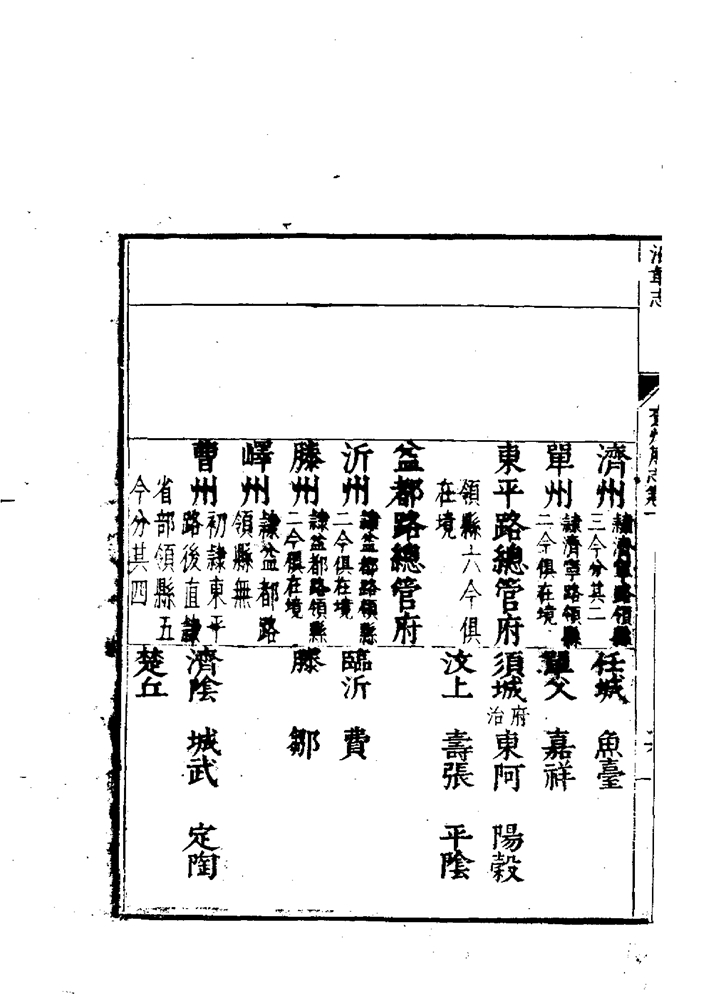 沿革志
兖州府志卷一
濟州隸濟寧路領縣三今分其二 任城 魚臺
單州隸濟寧路領縣二今俱在境 單父 嘉祥
東平路總管府領縣六今俱在境 須城府治 東阿 陽穀
汶上 壽張 平陰
益都路總管府
沂州隸益都路領縣二今俱在境 臨沂 費
滕州隸益都路領縣二今俱在境 滕 鄒
嶧州隸益都路領縣無
曹州初隸東平路後直隸省部領縣五今分其四 濟陰 城武 定陶
楚丘